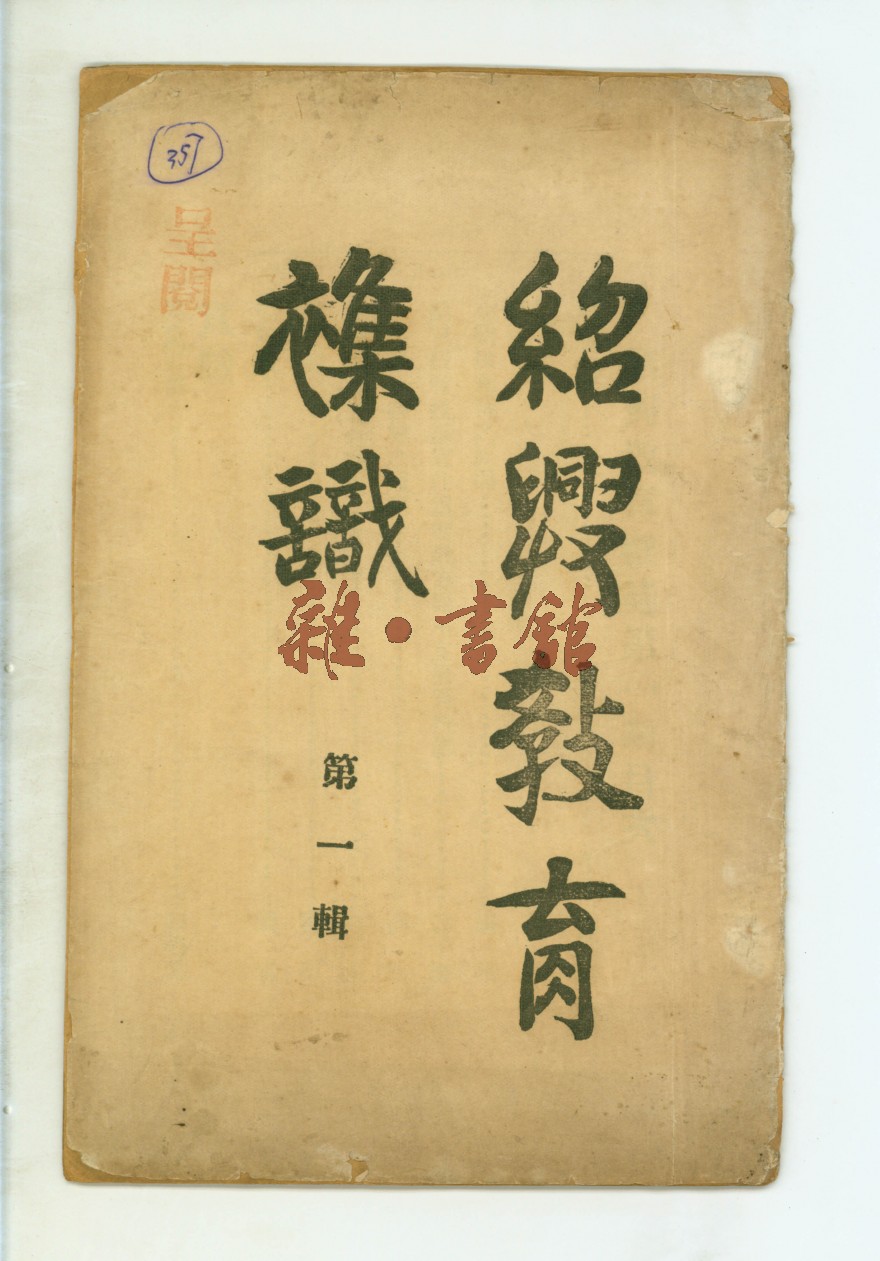 紹興教育
襍識
第一輯
呈閱
357
雜・書館